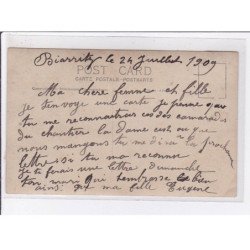 Biarritz le 24 Juillet 1909
POST CARD
CARTE POSTALE-POSTKARTE
Ma chère femme et fille
je t'envoye une carte je pense que
tu me reconnaitras ces des camarades
du chantier la Dame est ou que
nous mangeons tu me dira la prochene
lettre si tu ma reconnue
Je te ferais une lettre dimanche
ton mari qui t'embrasse bien
ainsi que ma fille Eugene